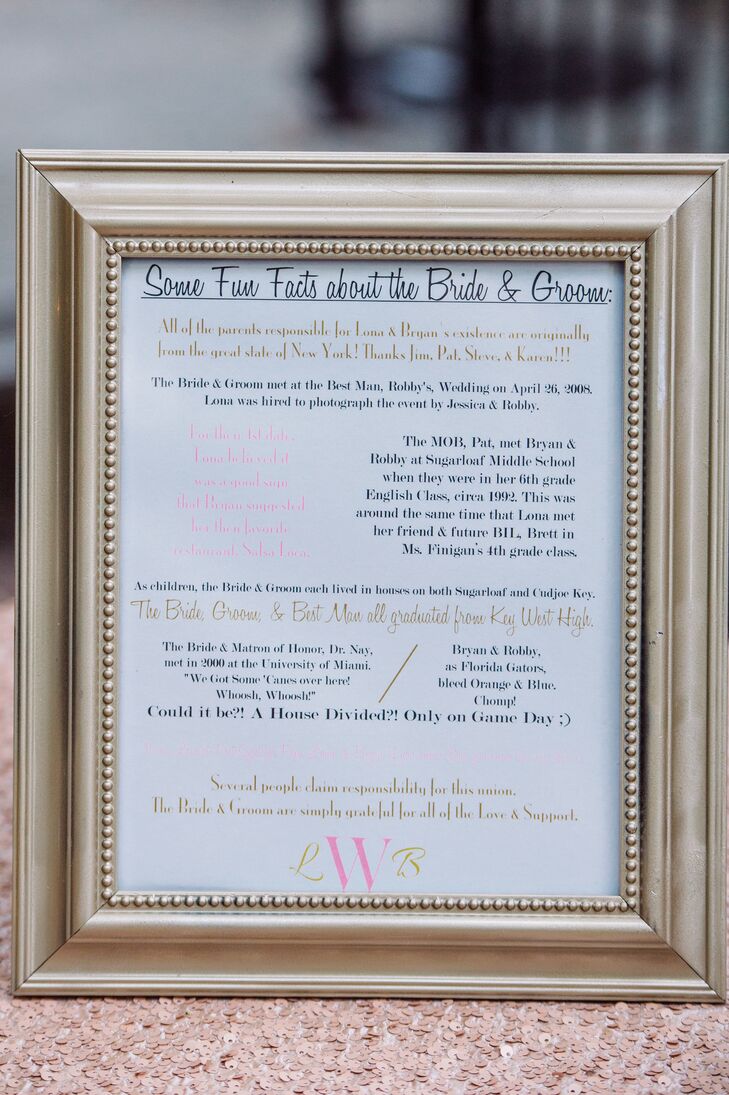 Some Fun Facts about the Bride & Groom:
All of the parents responsible for Lona & Bryan's existence are originally
from the great state of New York! Thanks Jim, Pat, Steve, & Karen!!!
The Bride & Groom met at the Best Man, Robby's, Wedding on April 26, 2008.
Lona was hired to photograph the event by Jessica & Robby.
For their 1st date,
Lona believed it
was a good sign
that Bryan suggested
her then favorite
restaurant, Salsa Loca.
The MOB, Pat, met Bryan &
Robby at Sugarloaf Middle School
when they were in her 6th grade
English Class, circa 1992. This was
around the same time that Lona met
her friend & future BIL, Brett in
Ms. Finigan's 4th grade class.
As children, the Bride & Groom each lived in houses on both Sugarloaf and Cudjoe Key.
The Bride, Groom, & Best Man all graduated from Key West High.
The Bride & Matron of Honor, Dr. Nay,
met in 2000 at the University of Miami.
"We Got Some 'Canes over here!
Whoosh, Whoosh!"
/
Bryan & Robby,
as Florida Gators,
bleed Orange & Blue.
Chomp!
Could it be?! A House Divided?! Only on Game Day ;)
Several people claim responsibility for this union.
The Bride & Groom are simply grateful for all of the Love & Support.
L W B